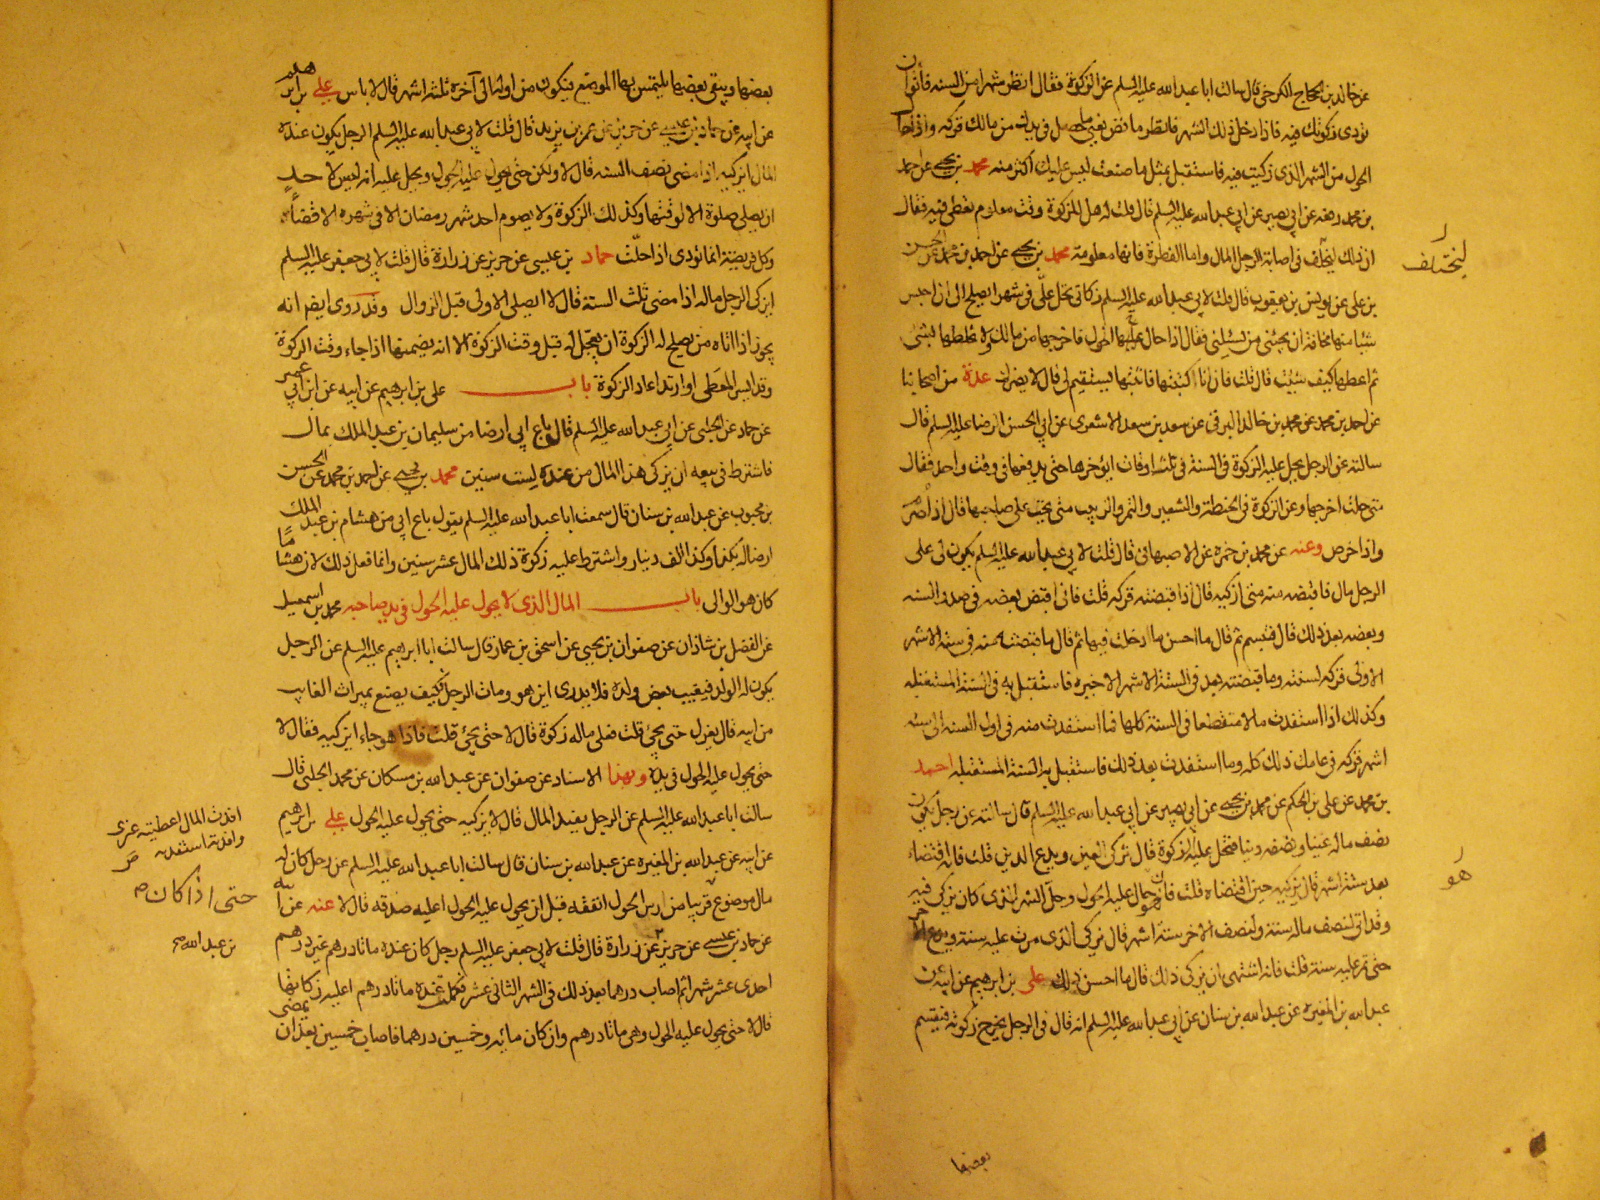 عن خالد بن الحجاج الكرخي قال سالت ابا عبد الله عليه السلم عن الزكوة فقال انظر شهرا من السنه فانو ان
تؤدي زكوتك فيه فاذا دخل ذلك الشهر فانظر ما نض يعني ما حصل في يدك من مالك فزكه واذا حال
الحول من الشهر الذي زكيت فيه فاستقبل بمثل ما صنعت ليس عليك اكثر منه محمد بن يحيى عن احمد
بن محمد رفعه عن ابي بصير عن ابي عبد الله عليه السلم قال قلت له هل للزكوة وقت معلوم يعطى فيه فقال
ان ذلك ليختلف في اصابة الرجل المال واما الفطرة فانها معلومة محمد بن يحيى عن احمد بن محمد عن الحسن
بن علي عن يونس بن يعقوب قال قلت لابي عبد الله عليه السلم زكاتي تحل علي في شهر ايصلح لي ان احبس
شيئا منها مخافة ان يجيئني من يسئلني فقال اذا حال عليها الحول فاخرجها من مالك ولا تخلطها بشئ
ثم اعطها كيف شئت قال قلت فان انا كتبتها واثبتها يستقيم لي قال لا يضرك عدة من اصحابنا
عن احمد بن محمد عن محمد بن خالد البرقي عن سعد بن سعد الاشعري عن ابي الحسن الرضا عليه السلم قال
سالته عن الرجل يحل عليه الزكوة في السنة في ثلثه اوقات ايؤخرها حتى يدفعها في وقت واحد فقال
متى حلت اخرجها وعن الزكوة في الحنطة والشعير والتمر والزبيب متى يجب على صاحبها قال اذا صرم
واذا خرص وعنه عن محمد بن حمزه عن الاصبهاني قال قلت لابي عبد الله عليه السلم يكون لي على
الرجل مال فاقبضه منه متى ازكيه قال اذا قبضته فزكه قلت فاني اقبض بعضه في صدر السنه
وبعضه بعد ذلك قال فتبسم ثم قال ما احسن ما ادخلت فيها ثم قال ما قبضته منه في ستة الاشهر
الاولى فزكه لسنته وما قبضته بعد في الستة الاشهر الاخيره فاستقبل به في السنة المستقبله
وكذلك اذا استفدت مالا منقطعا في السنة كلها فما استفدت منه في اول السنه الى سته
اشهر فزكه في عامك ذلك كله وما استفدت بعد ذلك فاستقبل به السنة المستقبله احمد
بن محمد عن علي بن الحكم عن محمد بن يحيى عن ابي بصير عن ابي عبد الله عليه السلم قال سالته عن رجل يكون
نصف ماله عينا ونصفه دينا فتحل عليه الزكوة قال يزكي العين ويدع الدين قلت فانه اقتضاه
بعد ستة اشهر قال يزكيه حين اقتضاه قلت فان هو حال عليه الحول وحل الشهر الذي كان يزكي فيه
وقد اتى لنصف ماله سنة ولنصف الاخر ستة اشهر قال يزكي الذي مرت عليه سنة ويدع الاخر
حتى تمر عليه سنة قلت فانه اشتهى ان يزكي ذلك قال ما احسن ذلك علي بن ابراهيم عن ابيه عن
عبد الله بن المغيره عن عبد الله بن سنان عن ابي عبد الله عليه السلم انه قال في الرجل يخرج زكوته فيقسم
ليختلف
هو
بعضها
بعضها ويبقى بعضها يلتمس بها الموضع فيكون من اوله الى آخره ثلثة اشهر قال لا باس علي بن ابراهيم
عن ابيه عن حماد بن عيسى عن حريز عن عمر بن يزيد قال قلت لابي عبد الله عليه السلم الرجل يكون عنده
المال ايزكيه اذا مضى نصف السنه قال لا ولكن حتى يحول عليه الحول ويحل عليه انه ليس لاحد
ان يصلي صلوة الا لوقتها وكذلك الزكوة ولا يصوم احد شهر رمضان الا في شهره الا قضاء
وكل فريضة انما تؤدى اذا حلت حماد بن عيسى عن حريز عن زرارة قال قلت لابي جعفر عليه السلم
ايزكي الرجل ماله اذا مضى ثلث السنة قال لا ايصلي الاولى قبل الزوال وقد روي ايضا انه
يجوز اذا اتاه من يصلح له الزكوة ان يعجل له قبل وقت الزكوة الا انه يضمنها اذا جاء وقت الزكوة
وقد ايسر المعطى او ارتد اعاد الزكوة باب علي بن ابرهيم عن ابيه عن ابن ابي عمير
عن حماد عن الحلبي عن ابي عبد الله عليه السلم قال باع ابي ارضا من سليمان بن عبد الملك بمال
فاشترط في بيعه ان يزكي هذا المال من عنده لست سنين محمد بن يحيى عن احمد بن محمد عن الحسن
بن محبوب عن عبد الله بن سنان قال سمعت ابا عبد الله عليه السلم يقول باع ابي من هشام بن عبد الملك
ارضا له بكذا وكذا الف دينار واشترط عليه زكوة ذلك المال عشر سنين وانما فعل ذلك لان هشاما
كان هو الوالي باب المال الذي لا يحول عليه الحول في يد صاحبه محمد بن اسمعيل
عن الفضل بن شاذان عن صفوان بن يحيى عن اسحق بن عمار قال سالت ابا ابرهيم عليه السلم عن الرجل
يكون له الولد فيغيب بعض ولده فلا يدري اين هو ومات الرجل فكيف يصنع بميراث الغايب
من ابيه قال يعزل حتى يجئ قلت فعلى ماله زكوة قال لا حتى يجئ قلت فاذا هو جاء ايزكيه فقال لا
حتى يحول عليه الحول في يده وبهذا الاسناد عن صفوان عن عبد الله بن مسكان عن محمد الحلبي قال
سالت ابا عبد الله عليه السلم عن الرجل يفيد المال قال لا يزكيه حتى يحول عليه الحول علي بن ابرهيم
عن ابيه عن عبد الله بن المغيره عن عبد الله بن سنان قال سالت ابا عبد الله عليه السلم عن رجل كان له
مال موضوع قريبا من راس الحول انفقه قبل ان يحول عليه الحول اعليه صدقه قال لا عنه عن ابيه
عن حماد بن عيسى عن حريز عن زرارة قال قلت لابي جعفر عليه السلم رجل كان عنده ماتا درهم غير درهم
احدى عشر شهرا ثم اصاب درهما بعد ذلك في الشهر الثاني عشر فكملت عنده ماتا درهم اعليه زكاتها
قال لا حتى يحول عليه الحول وهي ماتا درهم وان كان مائه وخمسين درهما فاصاب خمسين بعد ان يمضي
افدت المال اعطيته غيري
وافدته استفدته
حتى اذا كان
بن عبد الله